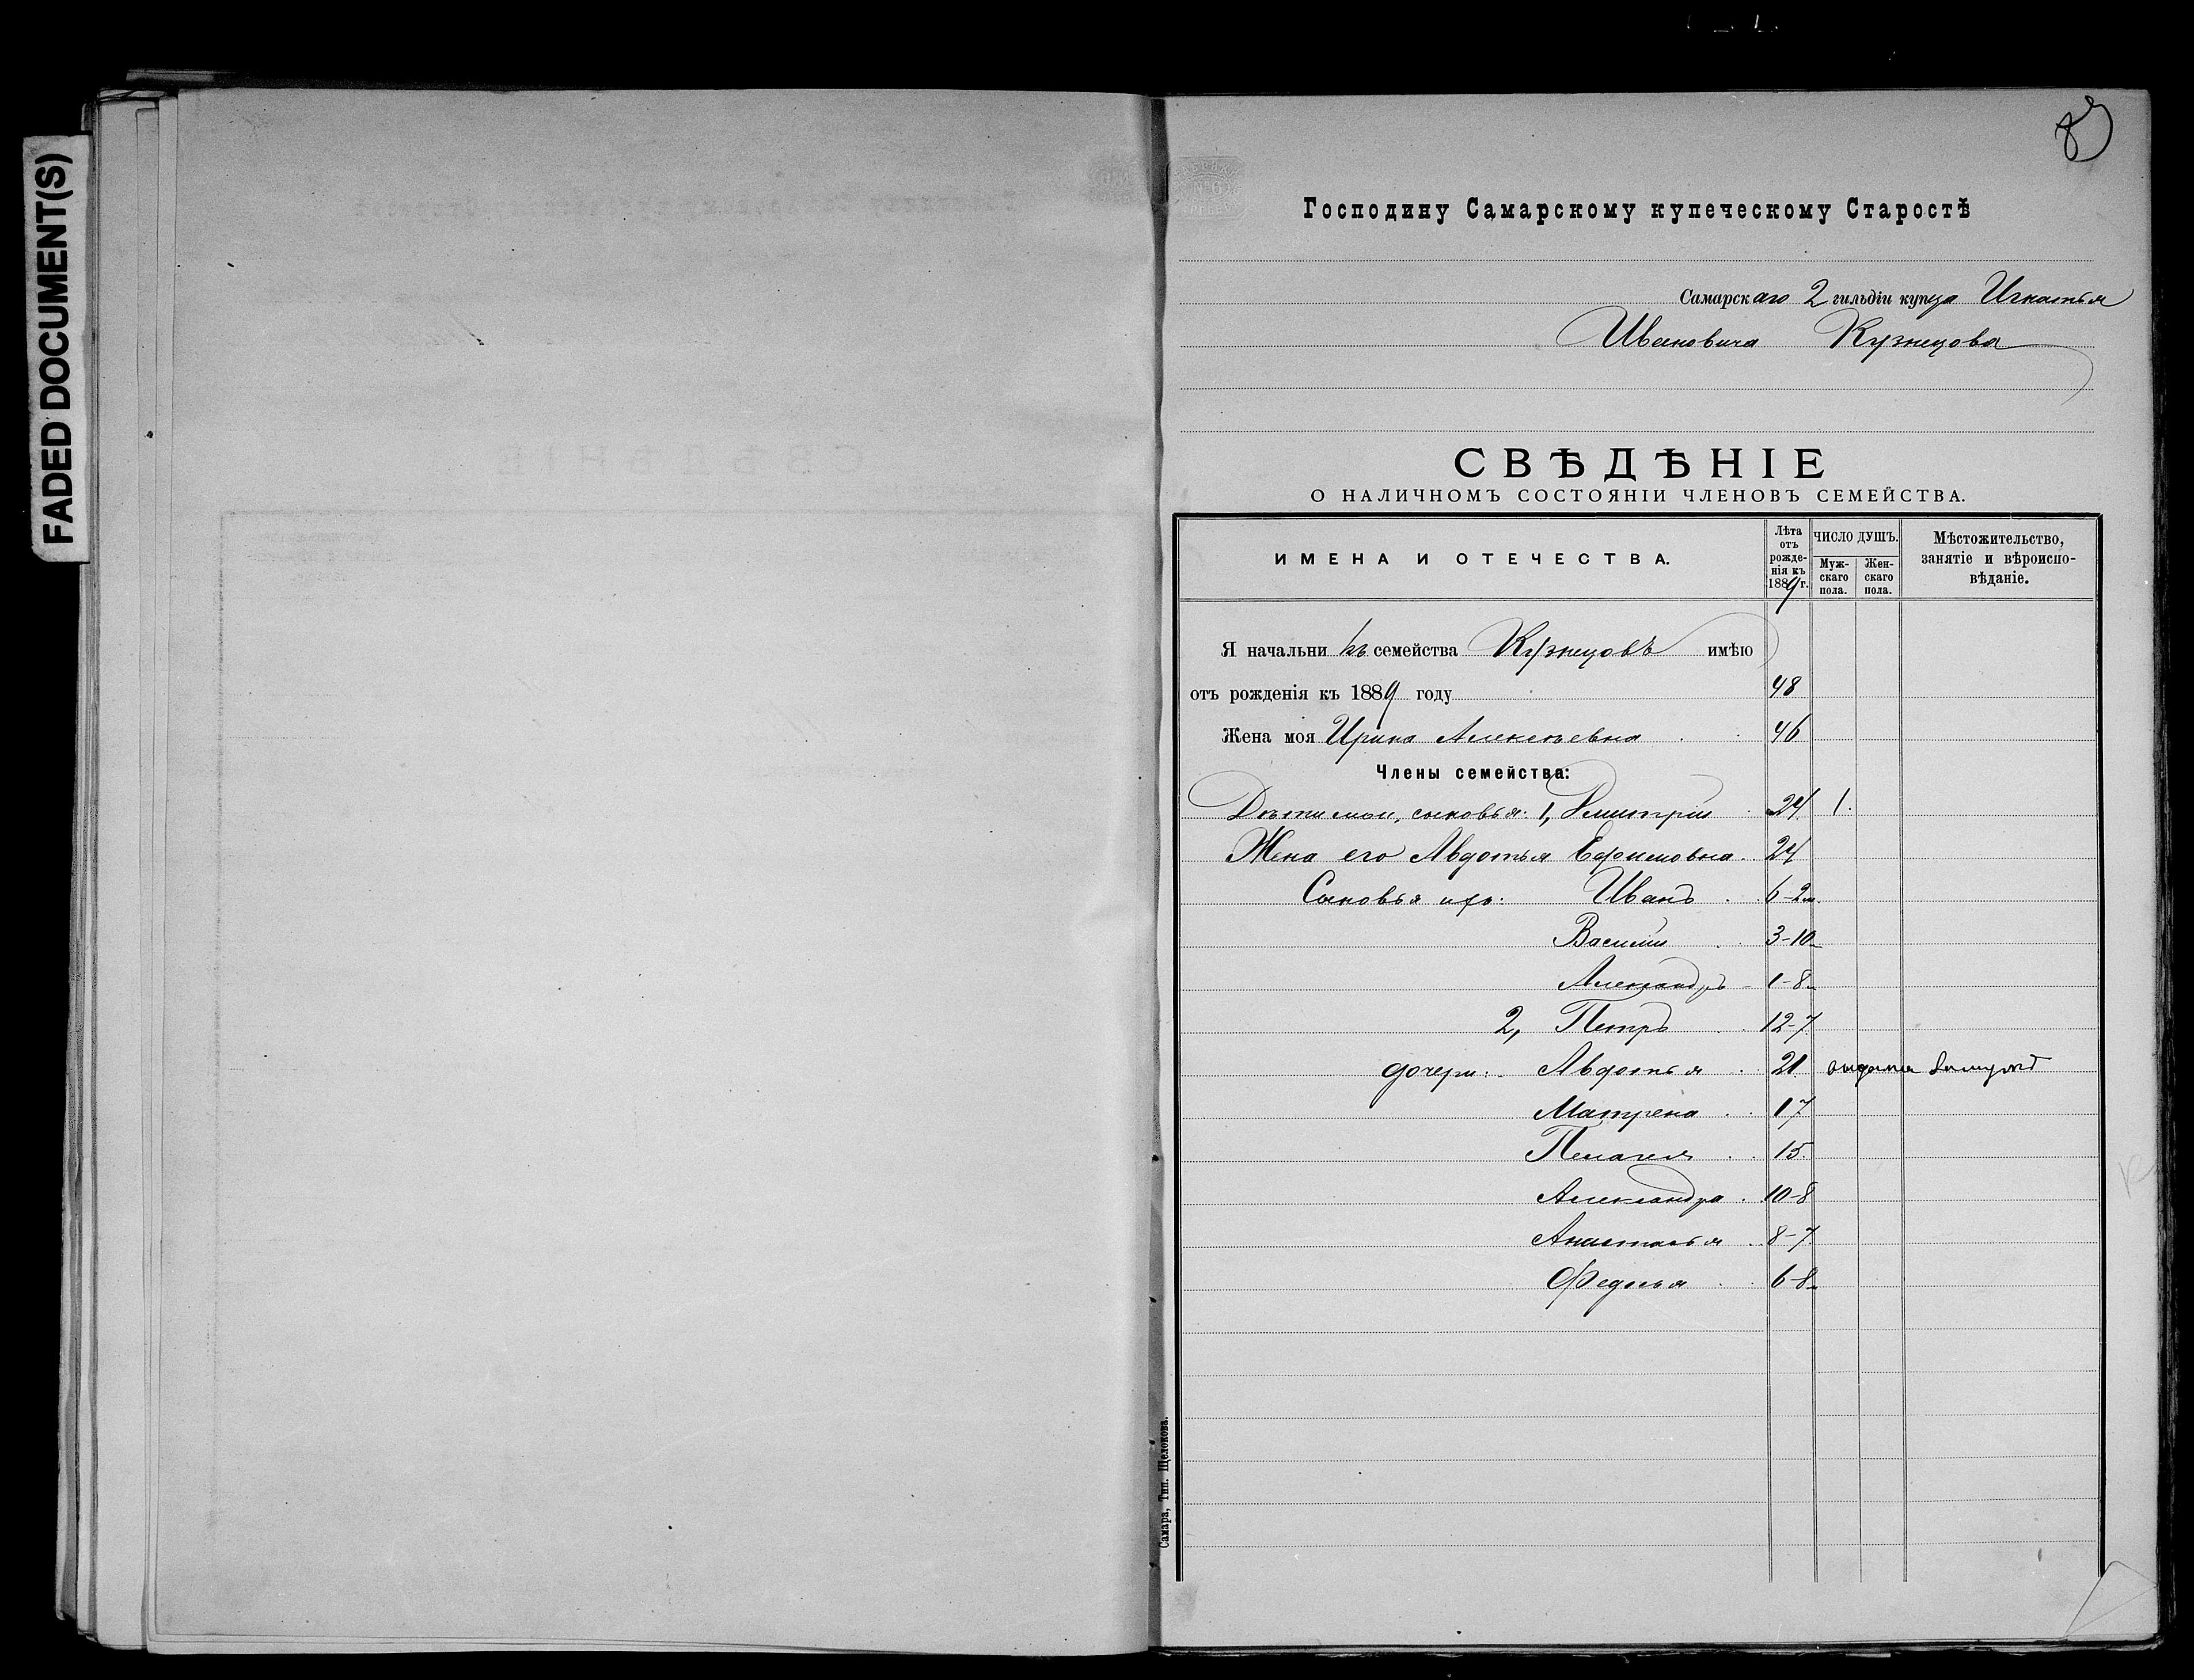 FADED DOCUMENT(S)
Господину Самарскому купеческому Старостѣ
Самарскаго 2 гильдіи купца Игнатья
Ивановича Кузнецова
СВѢДѢНІЕ
О НАЛИЧНОМЪ СОСТОЯНІИ ЧЛЕНОВЪ СЕМЕЙСТВА.
ИМЕНА И ОТЕЧЕСТВА.
Лѣта отъ рожде-нія къ 1889 г.
ЧИСЛО ДУШЪ.
Муж-скаго пола.
Жен-скаго пола.
Мѣстожительство, занятіе и вѣроиспо-вѣданіе.
Я начальникъ семейства Кузнецовъ имѣю
отъ рожденія къ 1889 году 48
Жена моя Ирина Алексѣевна 46
Члены семейства:
Дѣти мои, сыновья: 1, Дмитрій 24 1.
Жена его Авдотья Ефимовна 24
Сыновья ихъ: Иванъ 6-2м.
Василій 3-10
Александръ 1-8м
2, Петръ 12-7
дочери: Авдотья 21 выдана замужъ
Матрена 17
Пелагея 15
Александра 10-8
Анастасья 8-7
Федосья 6-8
Самара, Тип. Щелокова.